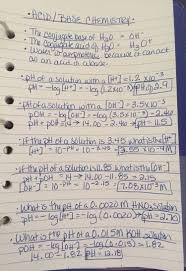 • ACID/BASE CHEMISTRY •
• The conjugate base of H₂O = OH⁻
• The conjugate acid of H₂O = H₃O⁺
• Water is amphoteric because it can act as an acid or a base.
• pH of a solution with a [H⁺] = 1.2 x 10⁻³
pH = -log[H⁺] = -log(1.2 x 10⁻³) pH = 2.9
• pH of a solution with a [OH⁻] = 3.5 x 10⁻³
pOH = -log[OH⁻] = -log(3.5 x 10⁻³) = 2.46
pH + pOH = 14 → 14.00 - 2.46 → pH = 11.5
• If the pH of a solution is 3.45 what is the [H⁺]
[H⁺] = 10^-pH = 10^-3.45 = 3.55 x 10⁻⁴ M
• if the pH of a solution is 11.85 what is the [OH⁻]
pOH = 14 - 11.85 = 2.15
[OH⁻] = 10^-pOH = 10^-2.15 = 7.08 x 10⁻³ M
• What is the pH of a 0.0020 M HNO₃ solution
pH = -log[H⁺] = -log(0.0020) → pH = 2.70
• What is the pH of a 0.015 M KOH solution
pOH = -log[OH⁻] = -log(0.015) = 1.82
14.00 - 1.82 pH = 12.18